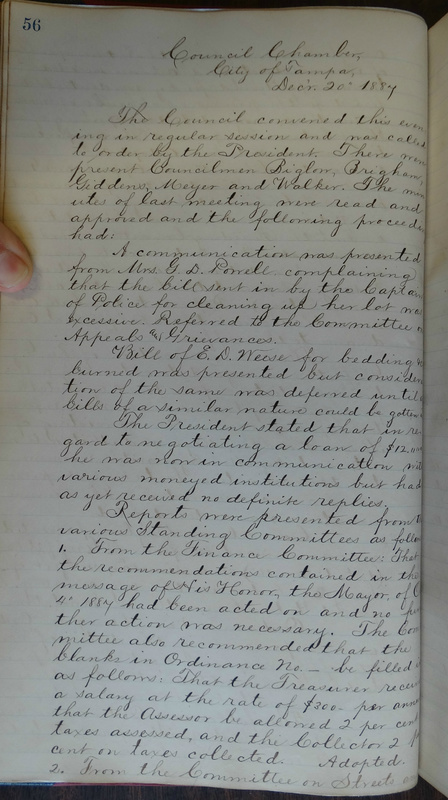 56
Council Chamber,
City of Tampa,
Decr. 20th 1887
The Council convened this even
ing in regular session and was called
to order by the President. There were
present Councilmen Biglow, Brigham,
Giddens, Meyer and Walker. The min
utes of last meeting were read and
approved and the following proceedin
had:
A communication was presented
from Mrs. G. D. Powell complaining
that the bill sent in by the Captain
of Police for cleaning up her lot was
excessive. Referred to the Committee o
Appeals & Grievances.
Bill of E. D. Weose for bedding
burned was presented but considera
tion of the same was deferred until
bills of a similar nature could be gotten
The President stated that in re
gard to negotiating a loan of $12,
he was now in communication with
various moneyed institutions but had
as yet received no definite replies.
Reports were presented from t
various Standing Committees as follow
1. From the Finance Committee: That
the recommendations contained in the
message of His Honor, the Mayor, of
4th 1887 had been acted on and no
ther action was necessary. The Com
mittee also recommended that the
blanks in Ordinance No. — be filled
as follows: That the Treasurer receive
a salary at the rate of $300- per ann
that the Assessor be allowed 2 per cent
taxes assessed, and the Collector 2 p
cent on taxes collected. Adopted.
2. From the Committee on Streets